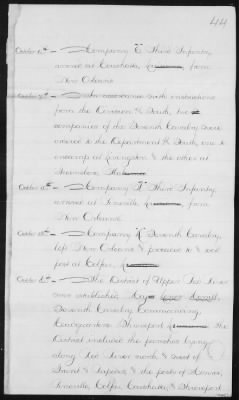 44
October 6th – Company "E" Third Infantry,
arrived at Coushatta, La., from
New Orleans.
October – In accordance with instructions
from the Division of South, two
companies of the Seventh Cavalry were
ordered to the Department of South, one to
encamp at Livingston & the other at
Greensboro,
October – Company "F" Third Infantry,
arrived at Pineville, from
New Orleans.
October – Company Seventh Cavalry,
left New Orleans & proceeded to & took
post at Colfax,
October – The District of Upper Red River
was established, Major Lewis Merrill,
Seventh Cavalry, Commanding,
Headquarters Shreveport, The
District included the parishes lying
along Red River north & west of
Grant & Rapides & the posts of
Pineville, Colfax, Coushatta, & Shreveport